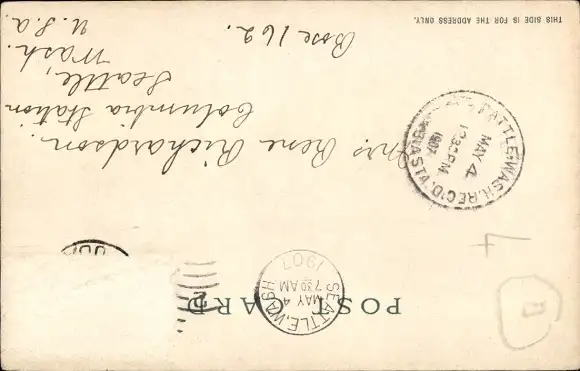 POST CARD
SEATTLE, WASH.
MAY 4
7 30 AM
1907
THIS SIDE IS FOR THE ADDRESS ONLY.
SEATTLE, WASH. REC'D.
MAY 4
1230PM
1907
Mrs Rene Richardson.
Columbia Station
Seattle,
Wash.
U.S.a
Box 162.